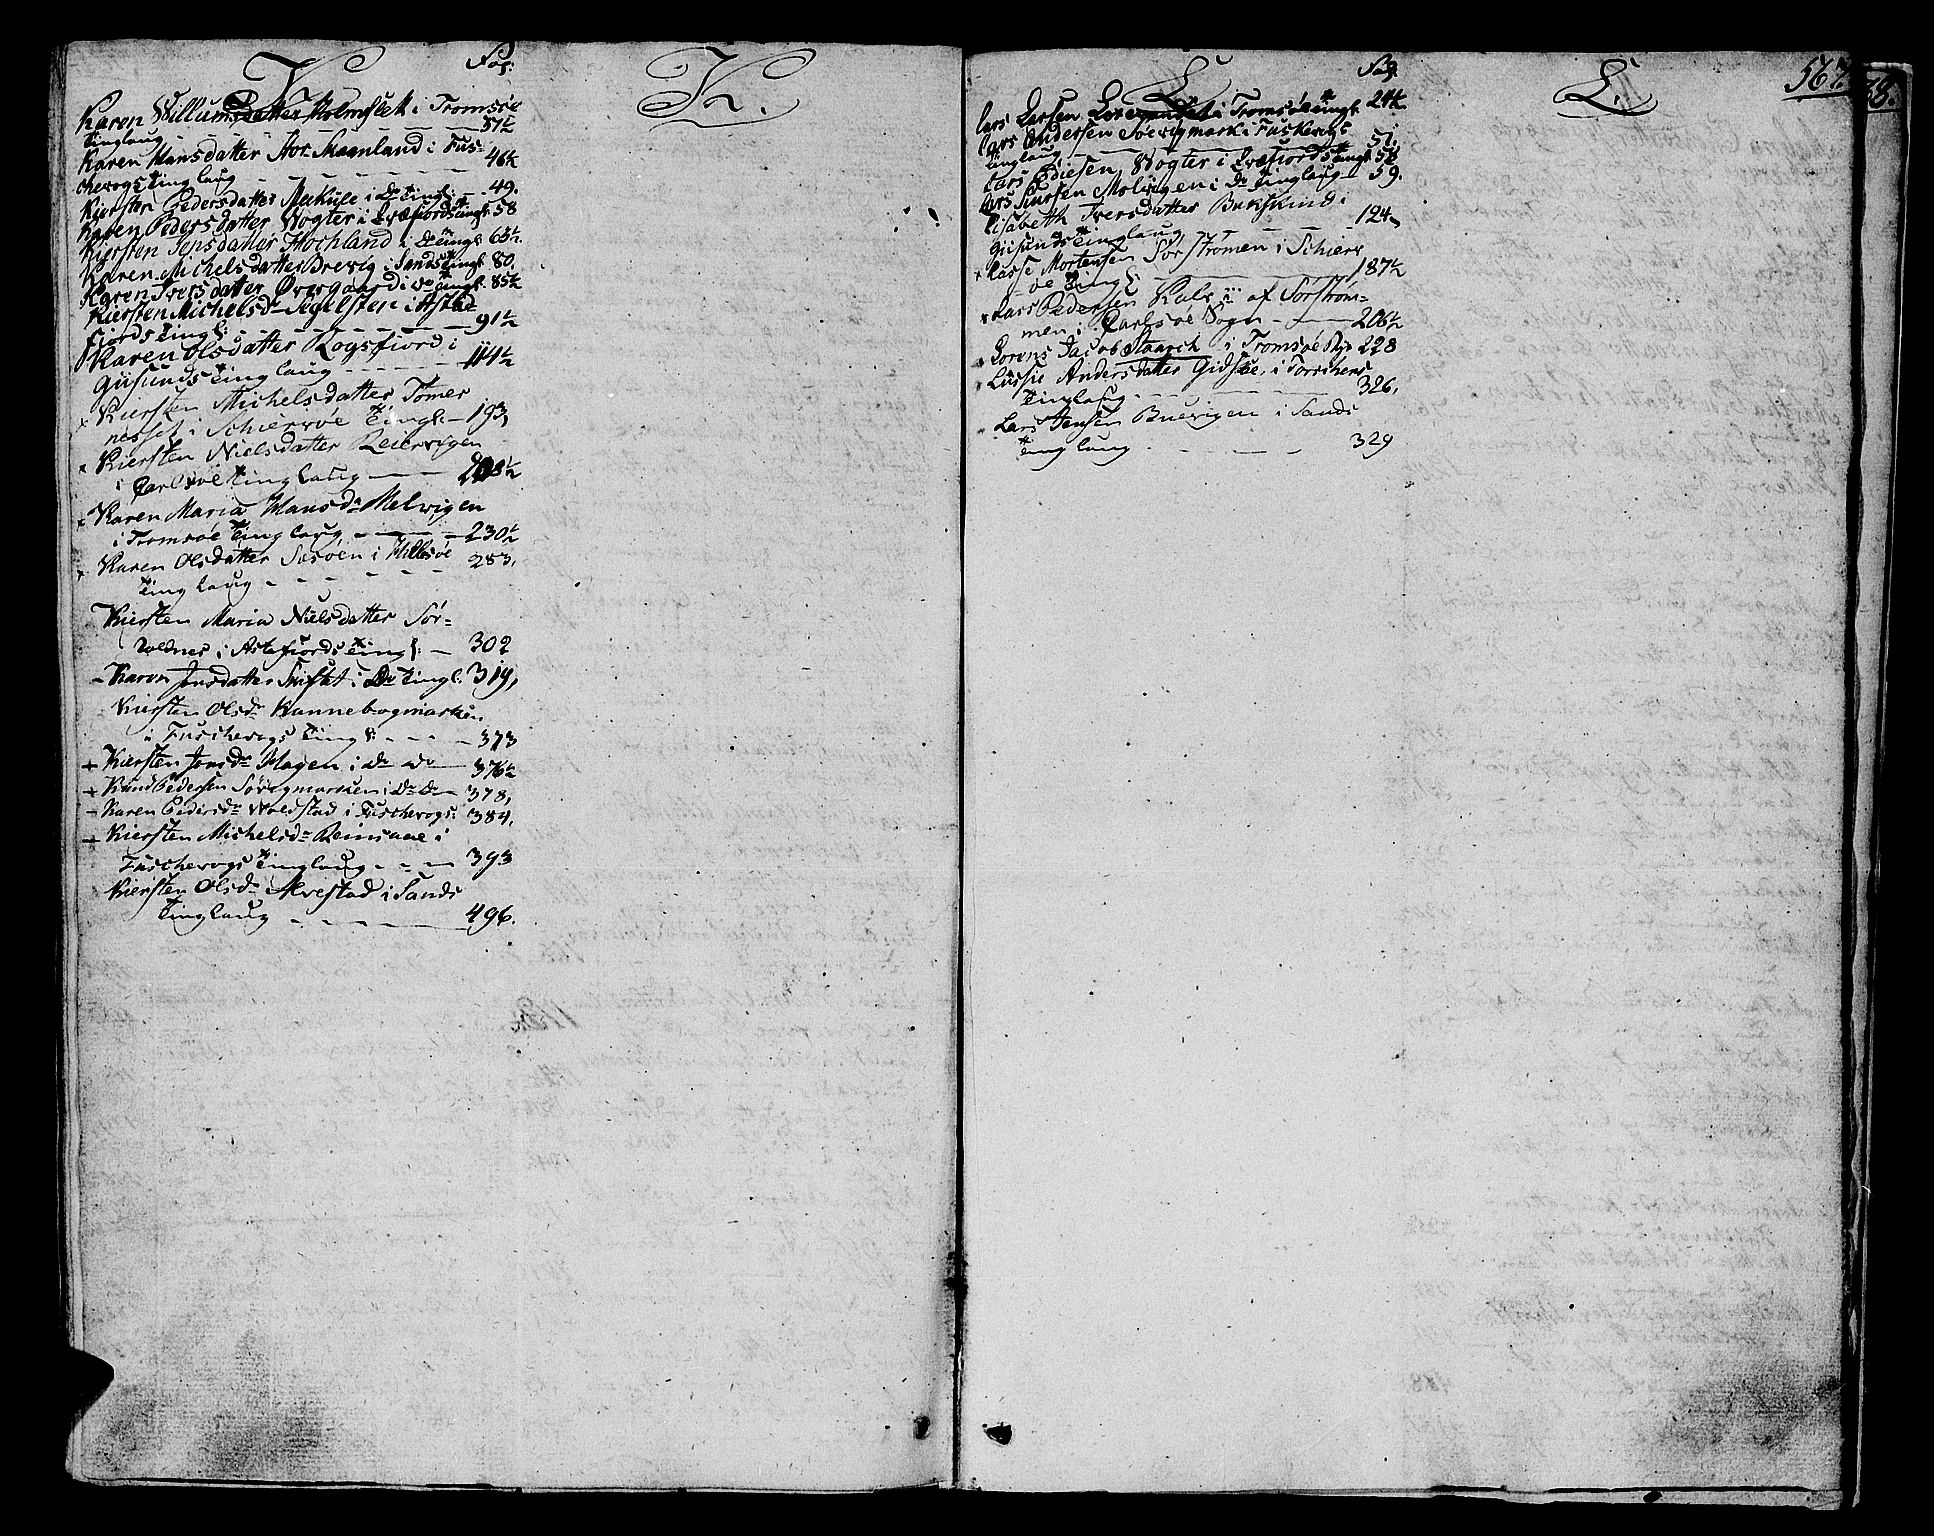 K. Fol:
K.
Karen Willumsdatter Holmslet i Tromsøe
Tinglaug 37½
Karen Hansdatter Stor Maanland i Fus-
chevogs Tinglaug 46½
Kiersten Pedersdatter i do Tingl: 49.
Karen Pedersdatter Vogter i Qvæfiords Tingl: 58
Kiersten Jensdatter Hochland i do Tingl: 63½
Karen Michelsdatter Brevig i Sands Tingl: 80.
Karen Iversdatter Øvergaard i do Tingl: 85½
Kiersten Michelsdr Segelsten i Astad-
fiords Tingl: 91½
Karen Olsdatter Rogsfiord i
Giisunds Tinglaug 114½
x Kiersten Michelsdatter Tomer
nesset i Schiervøe Tingl: 193
x Kiersten Nielsdatter Reiervigen
i Carlsøe Tinglaug
x Karen Maria Hansdr Melvigen
i Tromsøe Tinglaug 230½
x Karen Olsdatter i Hillesøe 283.
Tinglaug
Kiersten Maria Nielsdatter Sør-
i Astafiords Tingl: 302
Karen Jonsdatter i do Tingl: 319,
Kiersten Olsdr Kannebogmarken
i Fuschevogs Tingl: 373
+ Kiersten Jonsdr Hagen i do do 376½
+ Knud Pedersen i do do 378,
Karen Pedersdr Voldstad i Fuschevogs: 384.
+ Kiersten Michelsdr Reinsaae i
Fuschevogs Tinglaug 393
Kiersten Olsdr Alvestad i Sands
Tinglaug 496.
L. Fol:
L.
567.
Lars Larsen i Tromsøe Tingl: 24½
Lars Andersen i Fuskevogs
Tinglaug 51.
Lars Ediesen Vogter i Qvæfiords Tingl: 58
Lars Siursen Molvigen i do Tinglaug 59.
Lisabeth Iversdatter Bukskind i
Giisunds Tinglaug 124
x Lasse Mortensen Sør Strømen i Schierv
øe Tingl: 187½
x Lars Pedersen af Sørstrøm-
men i Carlsøe Sogn 206½
Lorens Jacob Staarch i Tromsøe Bye 228
Lussie Andersdatter Gidsøe i Torschens
Tinglaug 326.
Lars Jensen Buevigen i Sands
Tinglaug 329